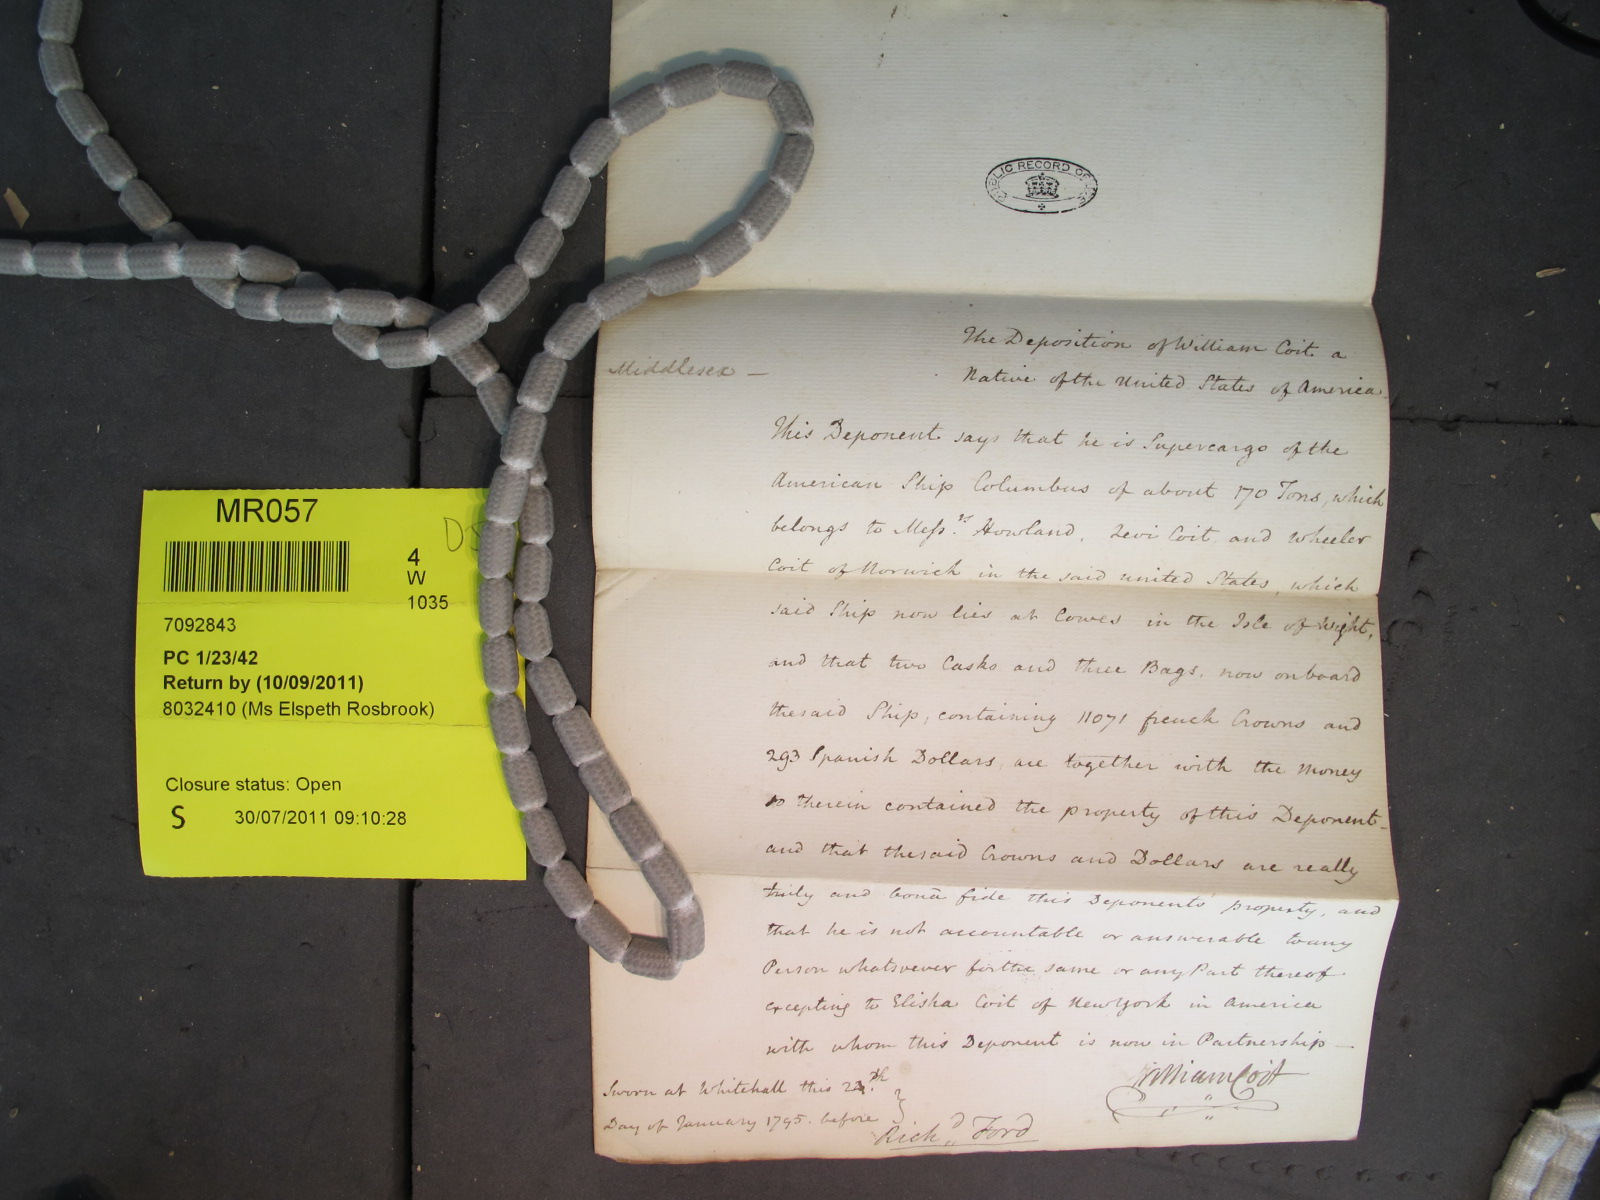 PUBLIC RECORD OFFICE
The Deposition of William Coit a
Native of the United States of America.
Middlesex —
This Deponent says that he is Supercargo of the
American Ship Columbus of about 170 Tons, which
belongs to Messrs. Howland, Levi Coit, and Wheeler
Coit of Norwich in the said United States, which
said Ship now lies at Cowes in the Isle of Wight,
and that two Casks and three Bags, now onboard
the said Ship, containing 11071 french Crowns and
293 Spanish Dollars, are together with the Money
so therein contained the property of this Deponent
and that the said Crowns and Dollars are really
truly and bonâ fide this Deponents property, and
that he is not accountable or answerable to any
Person whatsoever for the same or any Part thereof
excepting to Elisha Coit of New York in America
with whom this Deponent is now in Partnership —
William Coit
Sworn at Whitehall this th
Day of January 1795. before
Richd Ford
MR057
4
W
1035
7092843
PC 1/23/42
Return by (10/09/2011)
8032410 (Ms Elspeth Rosbrook)
Closure status: Open
S 30/07/2011 09:10:28